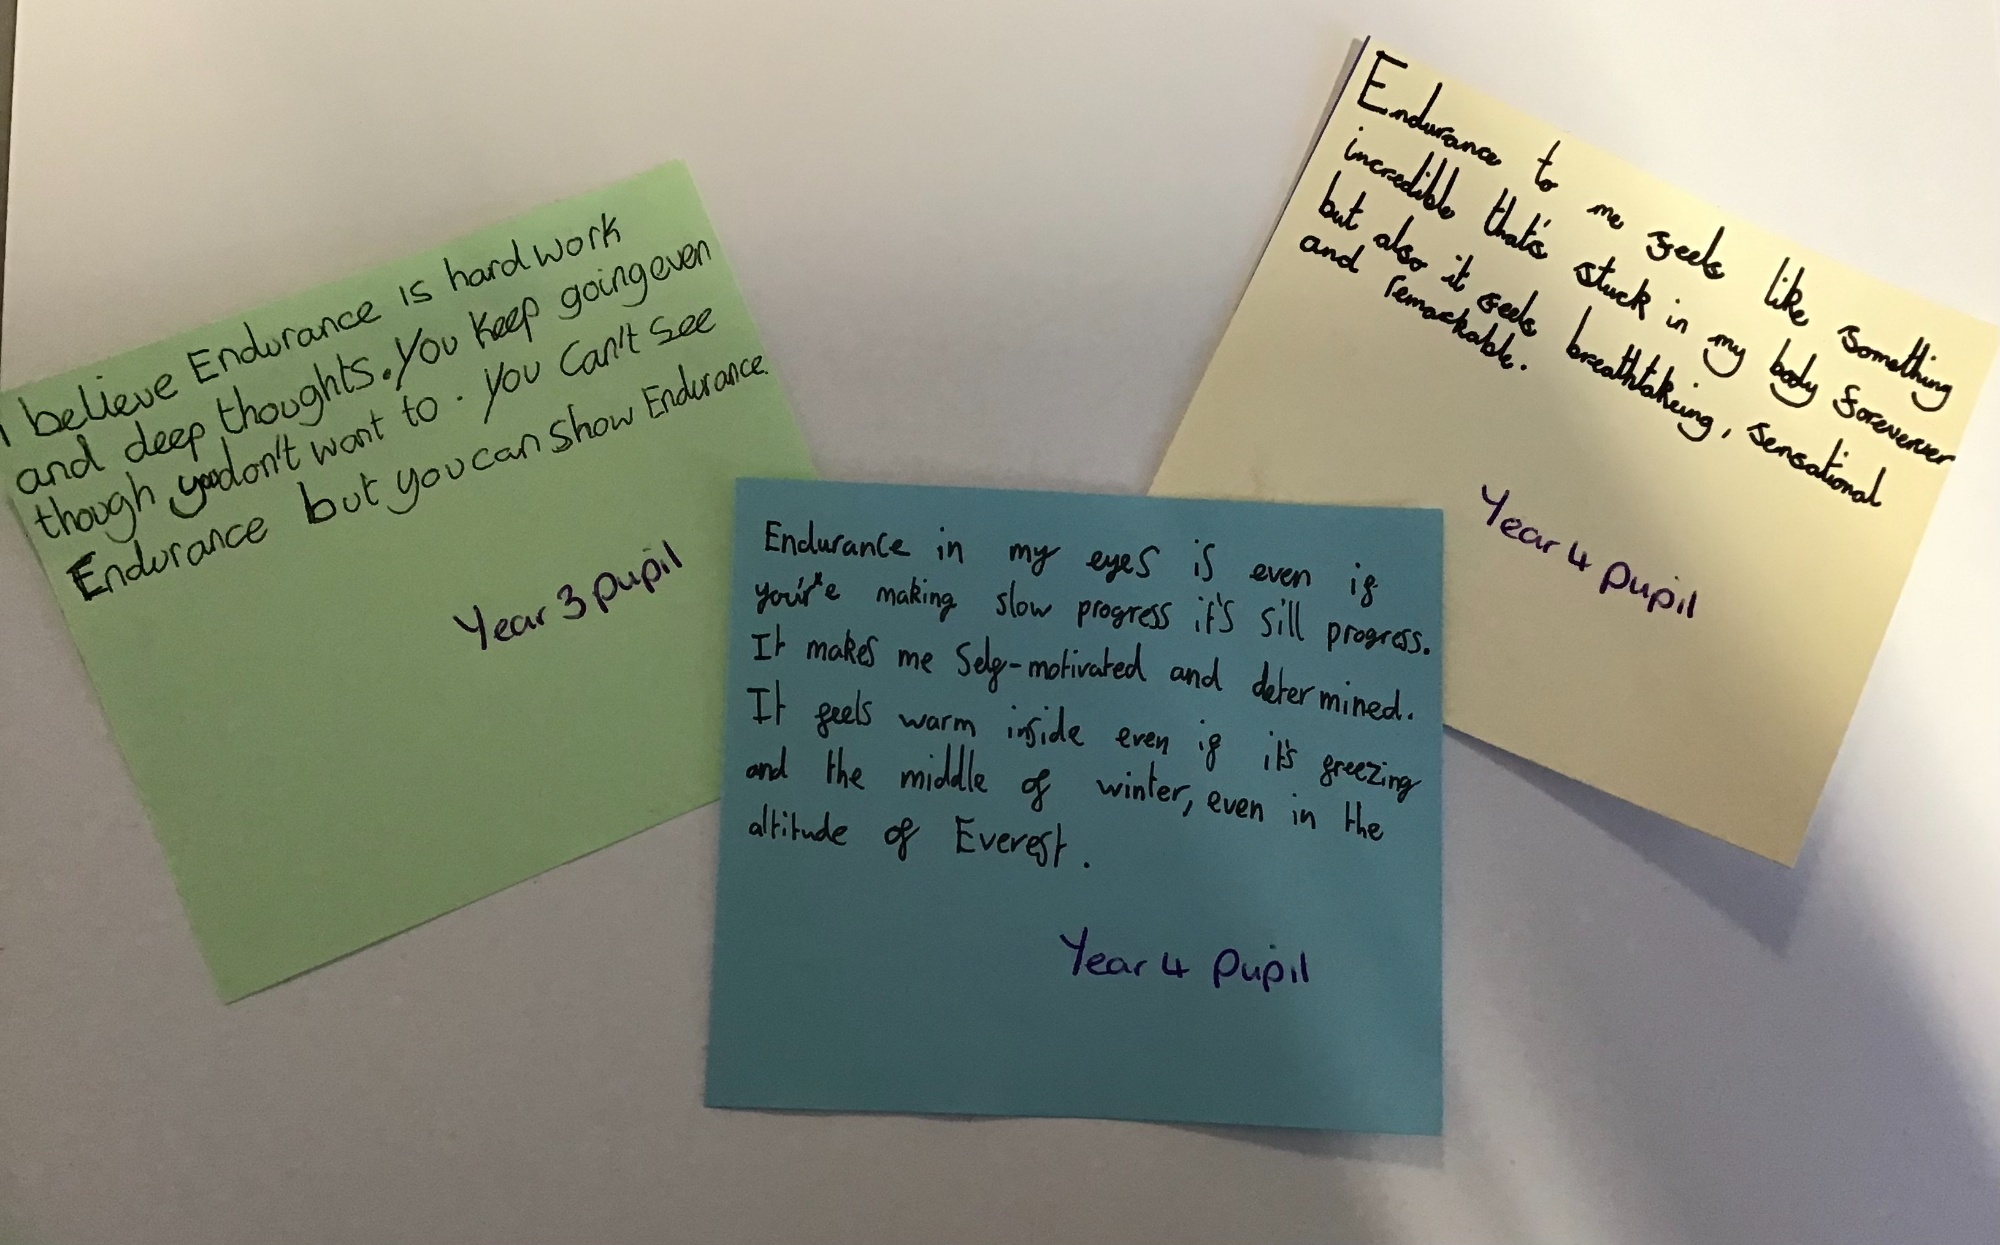 I believe Endurance is hard work
and deep thoughts. You keep going even
though you don't want to. you can't see
Endurance but you can show Endurance.
Year 3 pupil
Endurance in my eyes is even if
you're making slow progress it's sill progress.
It makes me self-motivated and determined.
It feels warm inside even if it's freezing
and the middle of winter, even in the
altitude of Everest.
Year 4 pupil
Endurance to me feels like something
incredible that's stuck in my body foreverver
but also it feels breathtakeing, sensational
and remarkable.
Year 4 pupil